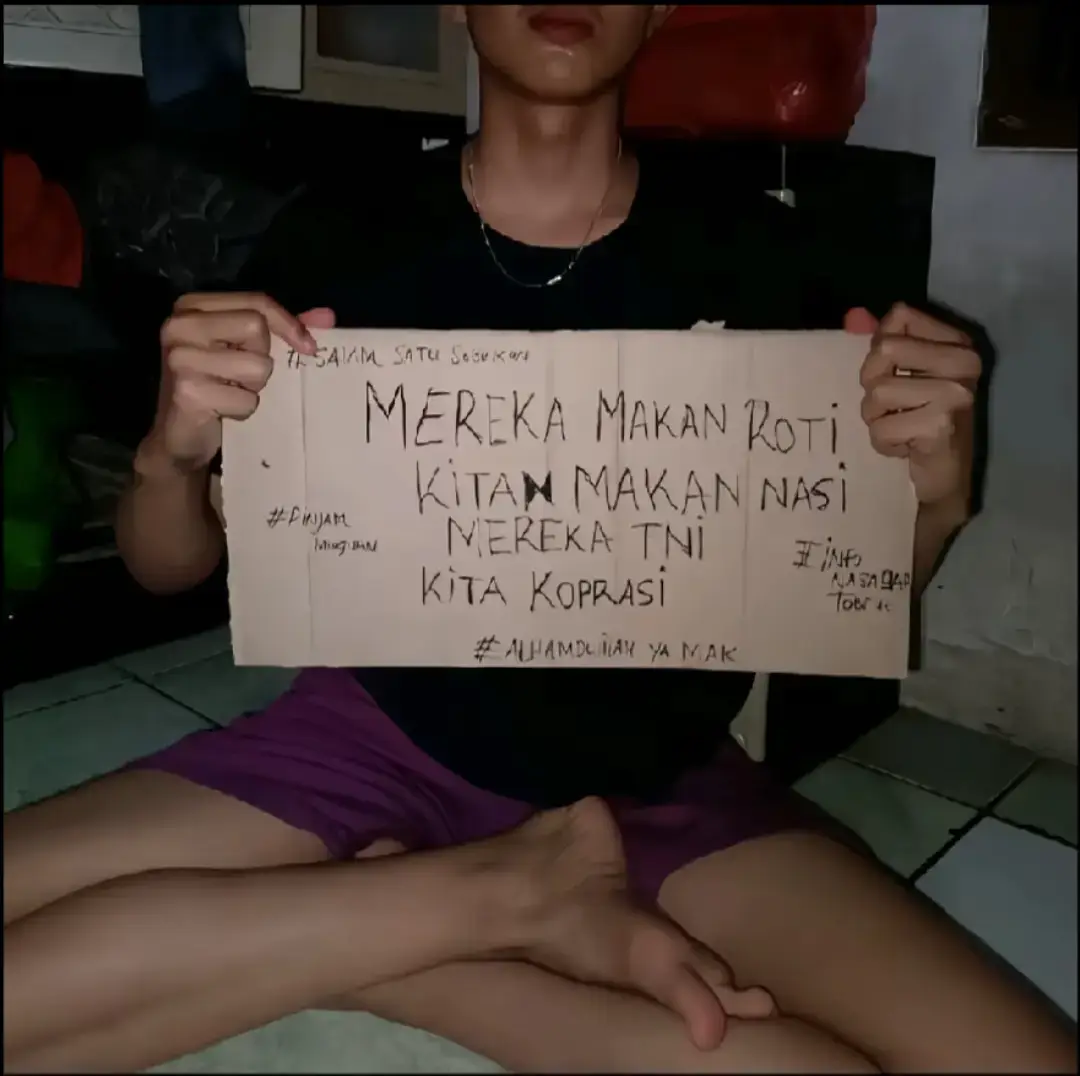 #SALAM SATU SEBUKAN
MEREKA MAKAN ROTI
KITA MAKAN NASI
MEREKA TNI
KITA KOPRASI
#PINJAM
#INFO
NASABAH
#ALHAMDULILAH YA MAK